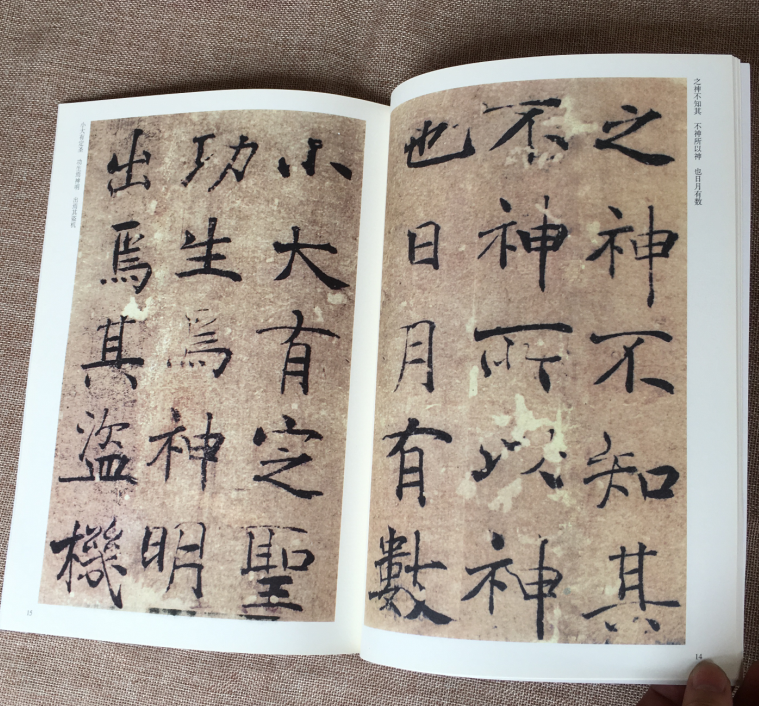 之神不知其　不神所以神　也日月有数
之神不知其
不神所以神
也日月有數
14
小大有定聖
功生焉神明
出焉其盜機
小大有定圣　功生焉神明　出焉其盗机
15